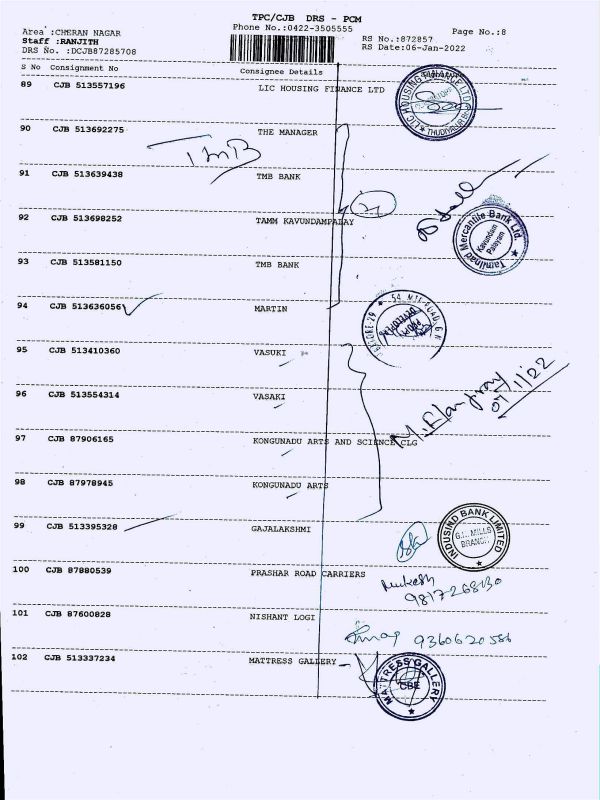 TPC/CJB DRS - PCM
Area :CHERAN NAGAR
Phone No.:0422-3505555
Page No.:8
Staff :RANJITH
RS No.:872857
DRS No. :DCJB87285708
RS Date:06-Jan-2022
S No Consignment No Consignee Details
89 CJB 513557196 LIC HOUSING FINANCE LTD
LIC HOUSING FINANCE LTD
90 CJB 513692275 THE MANAGER
TMB
91 CJB 513639438 TMB BANK
92 CJB 513698252 TAMM KAVUNDAMPALAY
Tamilnad Mercantile Bank Ltd
Kavundam
Palayam
93 CJB 513581150 TMB BANK
94 CJB 513636056 MARTIN
95 CJB 513410360 VASUKI
96 CJB 513554314 VASAKI
07/1/22
97 CJB 87906165 KONGUNADU ARTS AND SCIENCE CLG
98 CJB 87978945 KONGUNADU ARTS
99 CJB 513395328 GAJALAKSHMI
INDUSIND BANK LIMITED
G.N. MILLS
BRANCH
100 CJB 87880539 PRASHAR ROAD CARRIERS
Mukesh
9817268130
101 CJB 87600828 NISHANT LOGI
9360620586
102 CJB 513337234 MATTRESS GALLERY
MATTRESS GALLERY
CBE